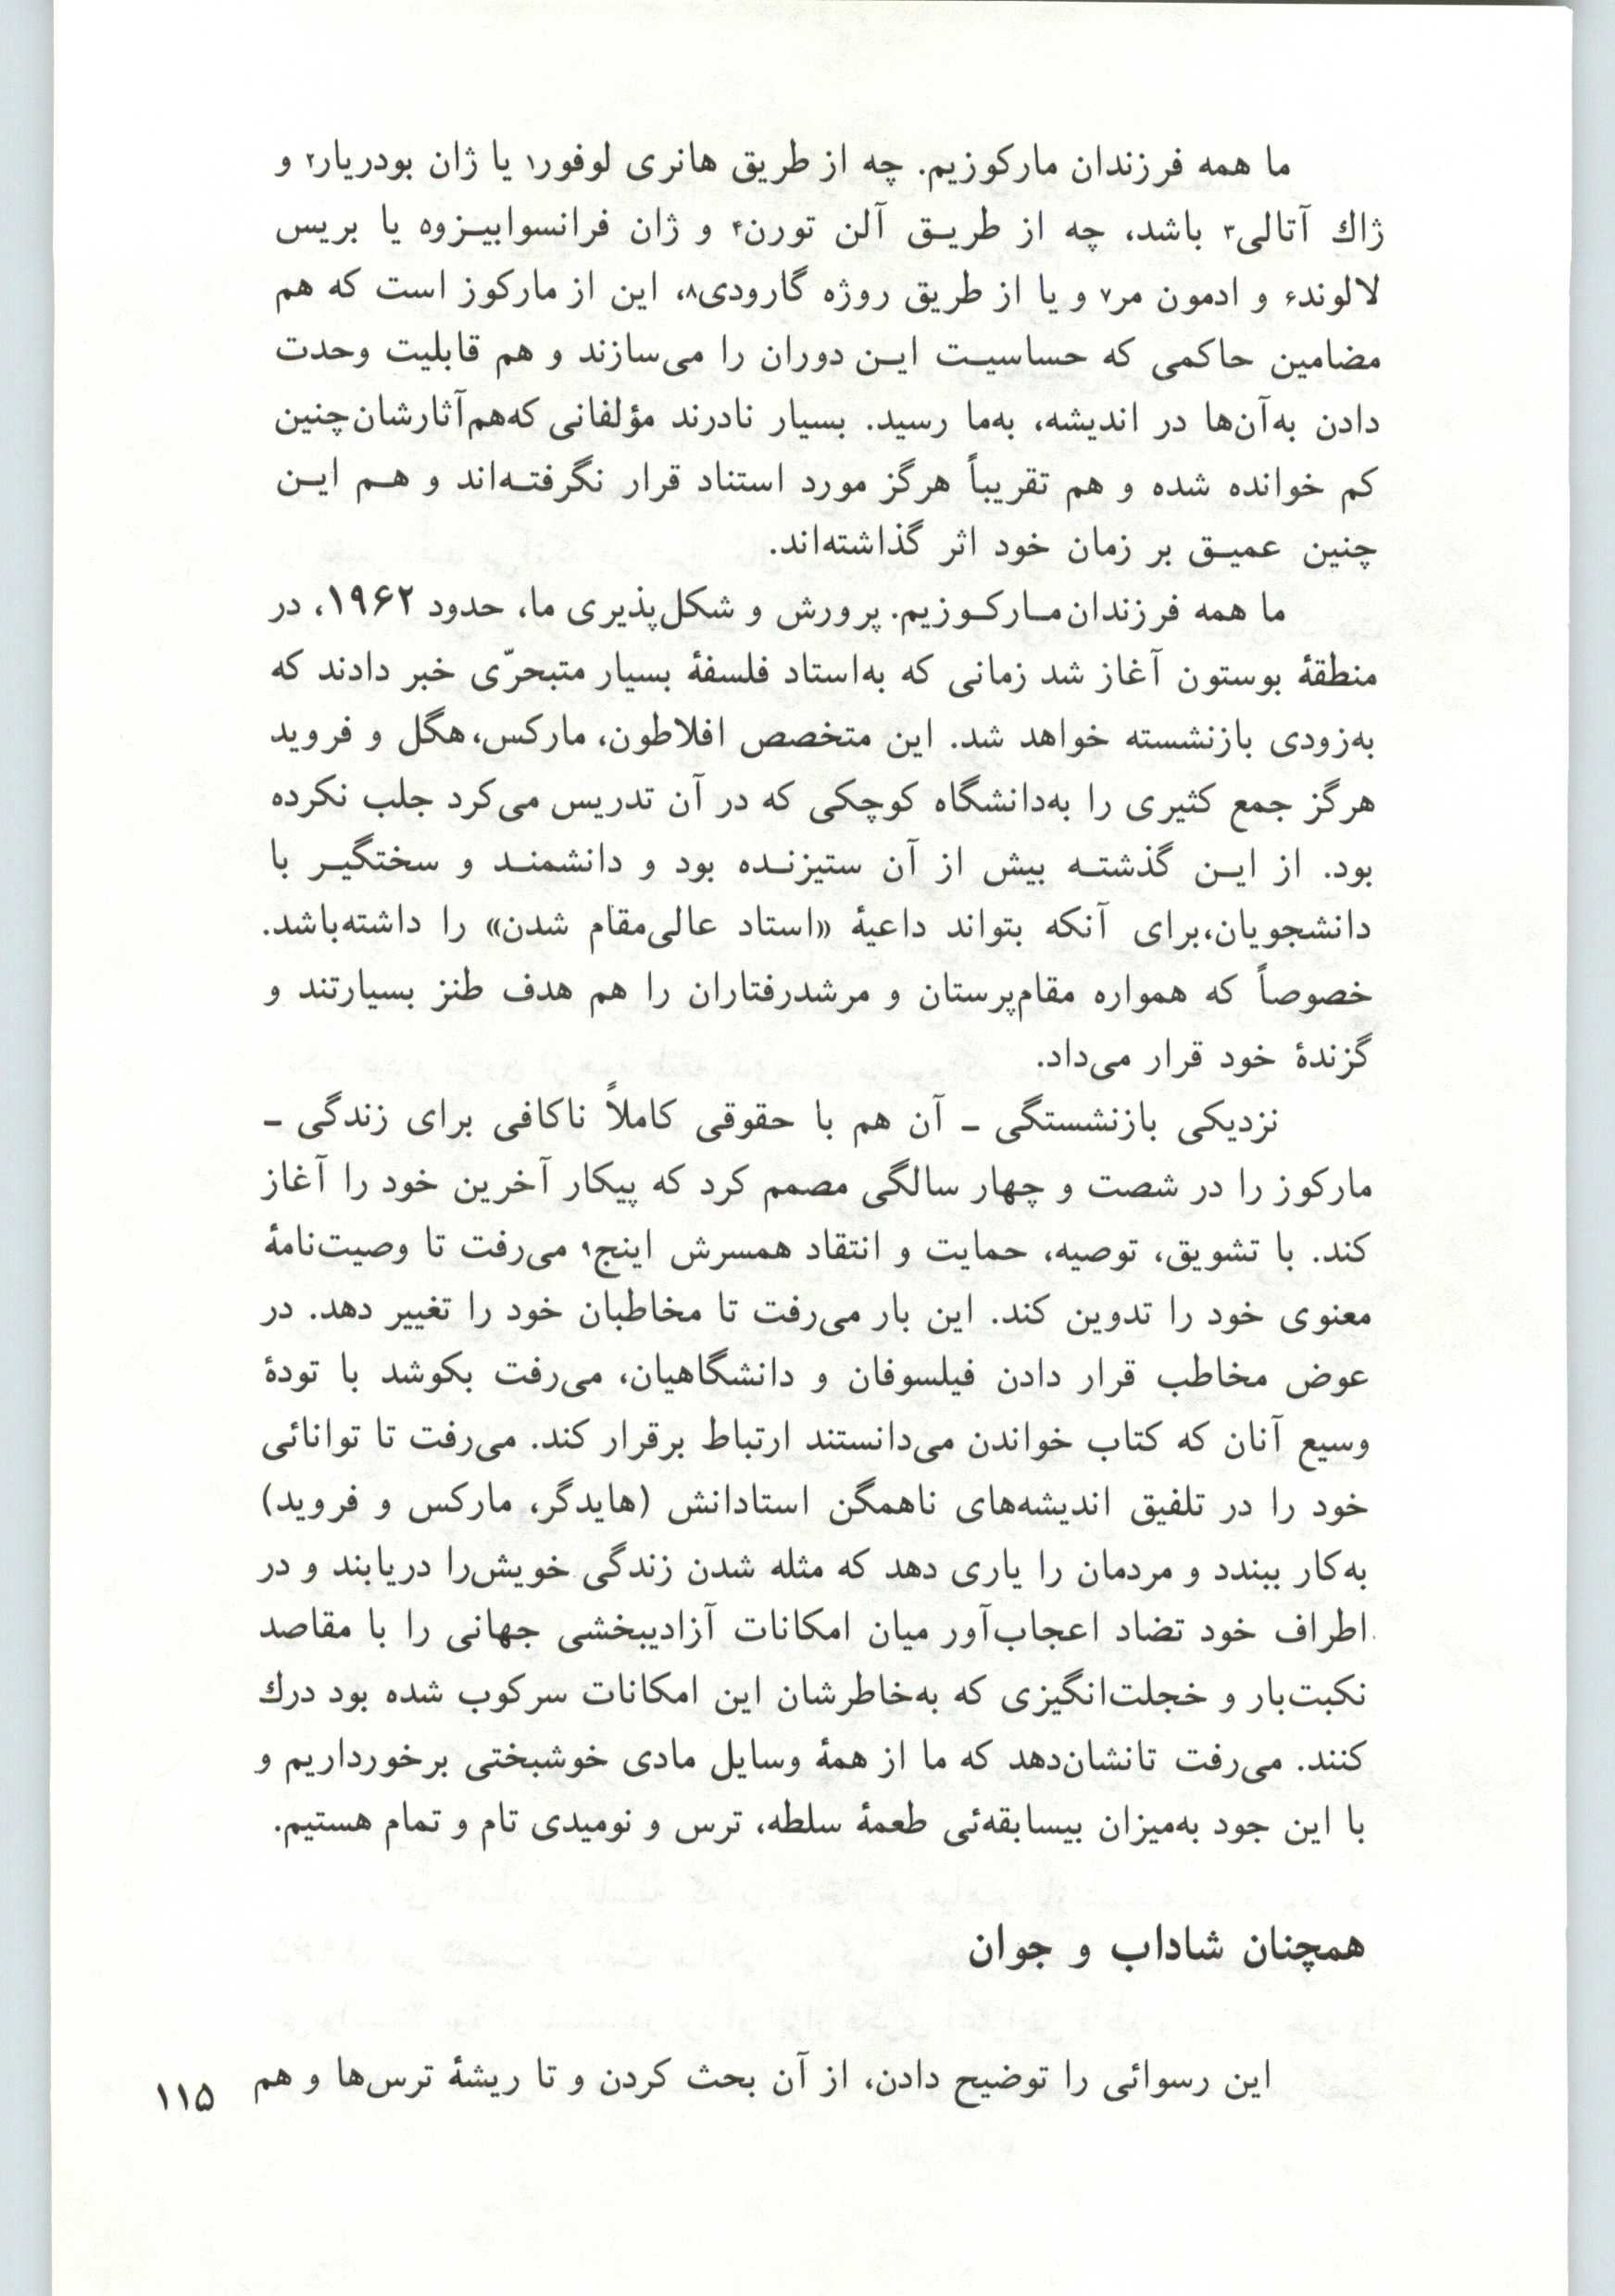 ما همه فرزندان مارکوزیم. چه از طریق هانری لوفور۱ یا ژان بودریار۲ و
ژاك آتالی۳ باشد، چه از طریق آلن تورن۴ و ژان فرانسوابیزوه یا بریس
لالوند۶ و ادمون مر۷ و یا از طریق روژه گارودی۸، این از مارکوز است که هم
مضامین حاکمی که حساسیت این دوران را می‌سازند و هم قابلیت وحدت
دادن به‌آن‌ها در اندیشه، به‌ما رسید. بسیار نادرند مؤلفانی که‌هم‌آثارشان‌چنین
کم خوانده شده و هم تقریباً هرگز مورد استناد قرار نگرفته‌اند و هم این
چنین عمیق بر زمان خود اثر گذاشته‌اند.
ما همه فرزندان مارکوزیم. پرورش و شکل‌پذیری ما، حدود ۱۹۶۲، در
منطقهٔ بوستون آغاز شد زمانی که به‌استاد فلسفهٔ بسیار متبحرّی خبر دادند که
به‌زودی بازنشسته خواهد شد. این متخصص افلاطون، مارکس،هگل و فروید
هرگز جمع کثیری را به‌دانشگاه کوچکی که در آن تدریس می‌کرد جلب نکرده
بود. از این گذشته بیش از آن ستیزنده بود و دانشمند و سختگیر با
دانشجویان،برای آنکه بتواند داعیهٔ «استاد عالی‌مقام شدن» را داشته‌باشد.
خصوصاً که همواره مقام‌پرستان و مرشدرفتاران را هم هدف طنز بسیارتند و
گزندهٔ خود قرار می‌داد.
نزدیکی بازنشستگی ـ آن هم با حقوقی کاملاً ناکافی برای زندگی ـ
مارکوز را در شصت و چهار سالگی مصمم کرد که پیکار آخرین خود را آغاز
کند. با تشویق، توصیه، حمایت و انتقاد همسرش اینج۹ می‌رفت تا وصیت‌نامهٔ
معنوی خود را تدوین کند. این بار می‌رفت تا مخاطبان خود را تغییر دهد. در
عوض مخاطب قرار دادن فیلسوفان و دانشگاهیان، می‌رفت بکوشد با تودهٔ
وسیع آنان که کتاب خواندن می‌دانستند ارتباط برقرار کند. می‌رفت تا توانائی
خود را در تلفیق اندیشه‌های ناهمگن استادانش (هایدگر، مارکس و فروید)
به‌کار ببندد و مردمان را یاری دهد که مثله شدن زندگی خویش‌را دریابند و در
اطراف خود تضاد اعجاب‌آور میان امکانات آزادیبخشی جهانی را با مقاصد
نکبت‌بار و خجلت‌انگیزی که به‌خاطرشان این امکانات سرکوب شده بود درك
کنند. می‌رفت تانشان‌دهد که ما از همهٔ وسایل مادی خوشبختی برخورداریم و
با این جود به‌میزان بیسابقه‌ئی طعمهٔ سلطه، ترس و نومیدی تام و تمام هستیم.
همچنان شاداب و جوان
این رسوائی را توضیح دادن، از آن بحث کردن و تا ریشهٔ ترس‌ها و هم
۱۱۵